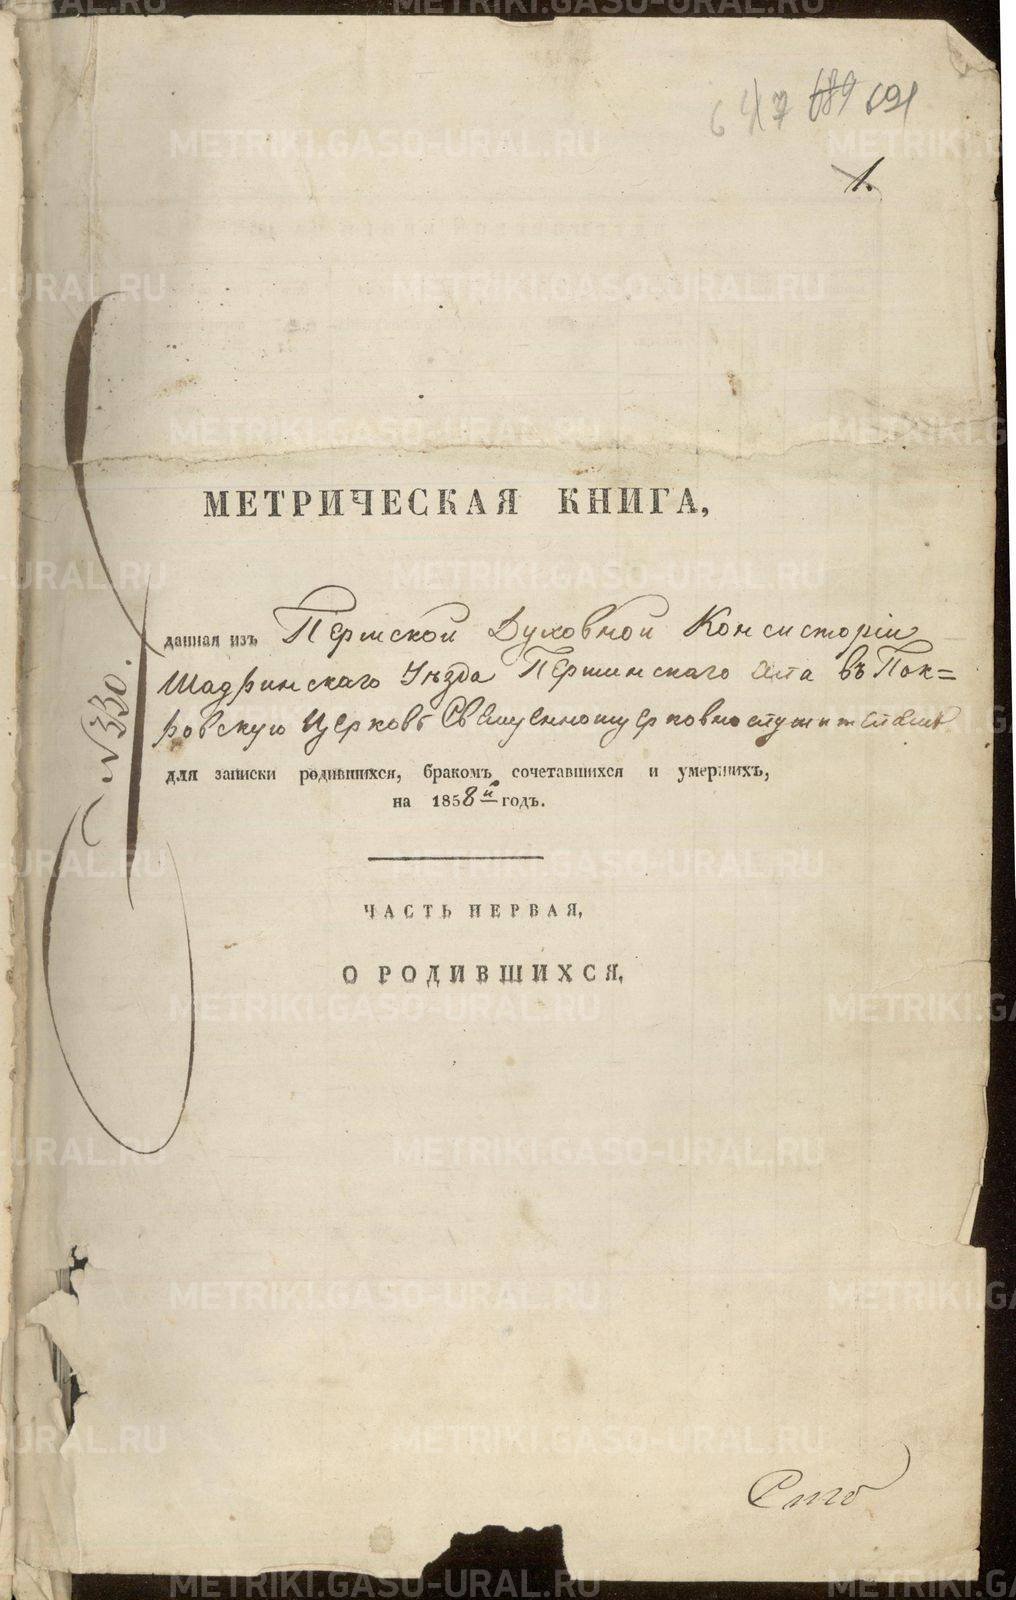 647 689 691
1.
МЕТРИЧЕСКАЯ КНИГА,
данная изъ Пермской Духовной Консисторіи
Шадринскаго Уѣзда Першинскаго села въ Пок=
ровскую Церковь Священноцерковнослужителямъ
для записки родившихся, бракомъ сочетавшихся и умершихъ,
на 1858й годъ.
№330.
ЧАСТЬ ПЕРВАЯ,
О РОДИВШИХСЯ,
METRIKI.GASO-URAL.RU